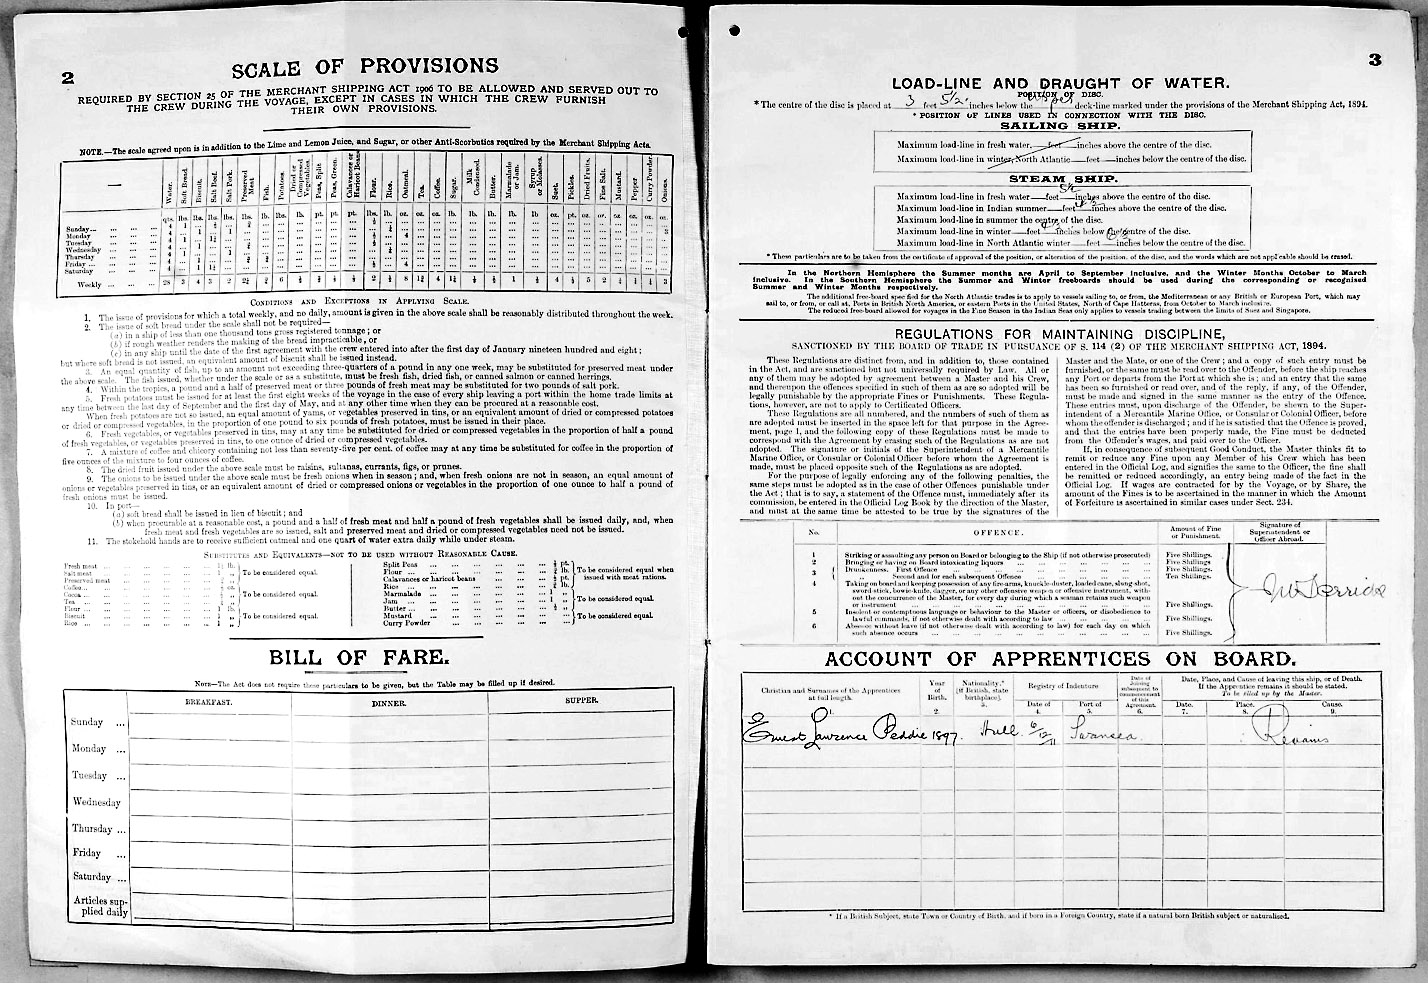 2
SCALE OF PROVISIONS
REQUIRED BY SECTION 25 OF THE MERCHANT SHIPPING ACT 1906 TO BE ALLOWED AND SERVED OUT TO
THE CREW DURING THE VOYAGE, EXCEPT IN CASES IN WHICH THE CREW FURNISH
THEIR OWN PROVISIONS.
NOTE.—The scale agreed upon is in addition to the Lime and Lemon Juice, and Sugar, or other Anti-Scorbutics required by the Merchant Shipping Acts.
Water. Soft Bread. Biscuit. Salt Beef. Salt Pork. Preserved Meat Fish. Potatoes. Dried or Compressed Vegetables. Peas, Split Peas, Green. Calavances or Haricot Beans Flour. Rice. Oatmeal. Tea. Coffee. Sugar. Milk Condensed. Butter. Marmalade or Jam. Syrup or Molasses. Suet. Pickles. Dried Fruits. Fine Salt. Mustard. Pepper Curry Powder. Onions.
Sunday
Monday
Tuesday
Wednesday
Thursday
Friday
Saturday
Weekly
CONDITIONS AND EXCEPTIONS IN APPLYING SCALE.
1. The issue of provisions for which a total weekly, and no daily, amount is given in the above scale shall be reasonably distributed throughout the week.
2. The issue of soft bread under the scale shall not be required—
(a) in a ship of less than one thousand tons gross registered tonnage; or
(b) if rough weather renders the making of the bread impracticable, or
(c) in any ship until the date of the first agreement with the crew entered into after the first day of January nineteen hundred and eight;
but where soft bread is not issued, an equivalent amount of biscuit shall be issued instead.
3. An equal quantity of fish, up to an amount not exceeding three-quarters of a pound in any one week, may be substituted for preserved meat under
the above scale. The fish issued, whether under the scale or as a substitute, must be fresh fish, dried fish, or canned salmon or canned herrings.
4. Within the tropics, a pound and a half of preserved meat or three pounds of fresh meat may be substituted for two pounds of salt pork.
5. Fresh potatoes must be issued for at least the first eight weeks of the voyage in the case of every ship leaving a port within the home trade limits at
any time between the last day of September and the first day of May, and at any other time when they can be procured at a reasonable cost.
When fresh potatoes are not so issued, an equal amount of yams, or vegetables preserved in tins, or an equivalent amount of dried or compressed potatoes
or dried or compressed vegetables, in the proportion of one pound to six pounds of fresh potatoes, must be issued in their place.
6. Fresh vegetables, or vegetables preserved in tins, may at any time be substituted for dried or compressed vegetables in the proportion of half a pound
of fresh vegetables, or vegetables preserved in tins, to one ounce of dried or compressed vegetables.
7. A mixture of coffee and chicory containing not less than seventy-five per cent. of coffee may at any time be substituted for coffee in the proportion of
five ounces of the mixture to four ounces of coffee.
8. The dried fruit issued under the above scale must be raisins, sultanas, currants, figs, or prunes.
9. The onions to be issued under the above scale must be fresh onions when in season; and, when fresh onions are not in season, an equal amount of
onions or vegetables preserved in tins, or an equivalent amount of dried or compressed onions or vegetables in the proportion of one ounce to half a pound of
fresh onions must be issued.
10. In port—
(a) soft bread shall be issued in lieu of biscuit; and
(b) when procurable at a reasonable cost, a pound and a half of fresh meat and half a pound of fresh vegetables shall be issued daily, and, when
fresh meat and fresh vegetables are so issued, salt and preserved meat and dried or compressed vegetables need not be issued.
11. The stokehold hands are to receive sufficient oatmeal and one quart of water extra daily while under steam.
SUBSTITUTES AND EQUIVALENTS—NOT TO BE USED WITHOUT REASONABLE CAUSE.
Fresh meat
Salt meat
Preserved meat
To be considered equal.
Coffee
Cocoa
Tea
To be considered equal.
Flour
Biscuit
Rice
To be considered equal.
Split Peas
Flour
Calavances or haricot beans
Rice
To be considered equal when issued with meat rations.
Marmalade
Jam
Butter
To be considered equal.
Mustard
Curry Powder
To be considered equal.
BILL OF FARE.
NOTE—The Act does not require these particulars to be given, but the Table may be filled up if desired.
BREAKFAST. DINNER. SUPPER.
Sunday ...
Monday ...
Tuesday ...
Wednesday
Thursday ...
Friday ...
Saturday ...
Articles sup-
plied daily
3
LOAD-LINE AND DRAUGHT OF WATER.
POSITION OF DISC.
* The centre of the disc is placed at 3 feet 5½ inches below the upper deck-line marked under the provisions of the Merchant Shipping Act, 1894.
* POSITION OF LINES USED IN CONNECTION WITH THE DISC.
SAILING SHIP.
Maximum load-line in fresh water, feet inches above the centre of the disc.
Maximum load-line in winter, North Atlantic feet inches below the centre of the disc.
STEAM SHIP.
Maximum load-line in fresh water feet inches above the centre of the disc.
Maximum load-line in Indian summer feet inches above the centre of the disc.
Maximum load-line in summer the centre of the disc.
Maximum load-line in winter feet inches below the centre of the disc.
Maximum load-line in North Atlantic winter feet inches below the centre of the disc.
* These particulars are to be taken from the certificate of approval of the position, or alteration of the position, of the disc, and the words which are not applicable should be erased.
In the Northern Hemisphere the Summer months are April to September inclusive, and the Winter Months October to March
inclusive. In the Southern Hemisphere the Summer and Winter freeboards should be used during the corresponding or recognised
Summer and Winter Months respectively.
The additional free-board specified for the North Atlantic trades is to apply to vessels sailing to, or from, the Mediterranean or any British or European Port, which may
sail to, or from, or call at, Ports in British North America, or eastern Ports in the United States, North of Cape Hatteras, from October to March inclusive.
The reduced free-board allowed for voyages in the Fine Season in the Indian Seas only applies to vessels trading between the limits of Suez and Singapore.
REGULATIONS FOR MAINTAINING DISCIPLINE,
SANCTIONED BY THE BOARD OF TRADE IN PURSUANCE OF S. 114 (2) OF THE MERCHANT SHIPPING ACT, 1894.
These Regulations are distinct from, and in addition to, those contained
in the Act, and are sanctioned but not universally required by Law. All or
any of them may be adopted by agreement between a Master and his Crew,
and thereupon the offences specified in such of them as are so adopted will be
legally punishable by the appropriate Fines or Punishments. These Regula-
tions, however, are not to apply to Certificated Officers.
These Regulations are all numbered, and the numbers of such of them as
are adopted must be inserted in the space left for that purpose in the Agree-
ment, page 1, and the following copy of these Regulations must be made to
correspond with the Agreement by erasing such of the Regulations as are not
adopted. The signature or initials of the Superintendent of a Mercantile
Marine Office, or Consular Officer, before whom the Agreement is
made, must be placed opposite such of the Regulations as are adopted.
For the purpose of legally enforcing any of the following penalties, the
same steps must be adopted as in the case of other Offences punishable under
the Act; that is to say, a statement of the Offence must, immediately after its
commission, be entered in the Official Log Book by the direction of the Master,
and must at the same time be attested to be true by the signatures of the
Master and the Mate, or one of the Crew; and a copy of such entry must be
furnished, or the same must be read over to the Offender, before the ship reaches
any Port or departs from the Port at which she is; and an entry that the same
has been so furnished or read over, and of the reply, if any, of the Offender,
must be made and signed in the same manner as the entry of the Offence.
These entries must, upon discharge of the Offender, be shown to the Super-
intendent of a Mercantile Marine Office, or Consular or Colonial Officer, before
whom the offender is discharged; and if he is satisfied that the Offence is proved,
and that the entries have been properly made, the Fine must be deducted
from the Offender's wages, and paid over to the Officer.
If, in consequence of subsequent Good Conduct, the Master thinks fit to
remit or reduce any Fine upon any Member of his Crew which has been
entered in the Official Log, and signifies the same to the Officer, the fine shall
be remitted or reduced accordingly, an entry being made of the fact in the
Official Log. If wages are contracted for by the Voyage, or by Share, the
amount of the Fines is to be ascertained in the manner in which the Amount
of Forfeiture is ascertained in similar cases under Sect. 234.
No. OFFENCE. Amount of Fine or Punishment. Signature of Superintendent or Officer Abroad.
1 Striking or assaulting any person on Board or belonging to the Ship (if not otherwise prosecuted) Five Shillings.
2 Bringing or having on Board intoxicating liquors Five Shillings.
3 Drunkenness. First Offence Five Shillings.
" Second and for each subsequent Offence Ten Shillings.
4 Taking on board and keeping possession of any fire-arms, knuckle-duster, loaded cane, slung-shot,
sword-stick, bowie-knife, dagger, or any other offensive weapon or offensive instrument, with-
out the concurrence of the Master, for every day during which a seaman retains such weapon
or instrument Five Shillings.
5 Insolent or contemptuous language or behaviour to the Master or officers, or disobedience to
lawful commands, if not otherwise dealt with according to law Five Shillings.
6 Absence without leave (if not otherwise dealt with according to law) for each day on which
such absence occurs Five Shillings.
ACCOUNT OF APPRENTICES ON BOARD.
Christian and Surnames of the Apprentices at full length. 1. Year of Birth. 2. Nationality.* [If British, state birthplace]. 3. Registry of Indenture Date of 4. Port of 5. Date of Joining subsequent to commencement of this Agreement. 6. Date, Place, and Cause of leaving this ship, or of Death. If the Apprentice remains it should be stated. To be filled up by the Master. Date. 7. Place. 8. Cause. 9.
Ernest Lawrence Peddie 1897. Hull 6/12/11 Swansea Remains
* If a British Subject, state Town or Country of Birth, and if born in a Foreign Country, state if a natural born British subject or naturalised.